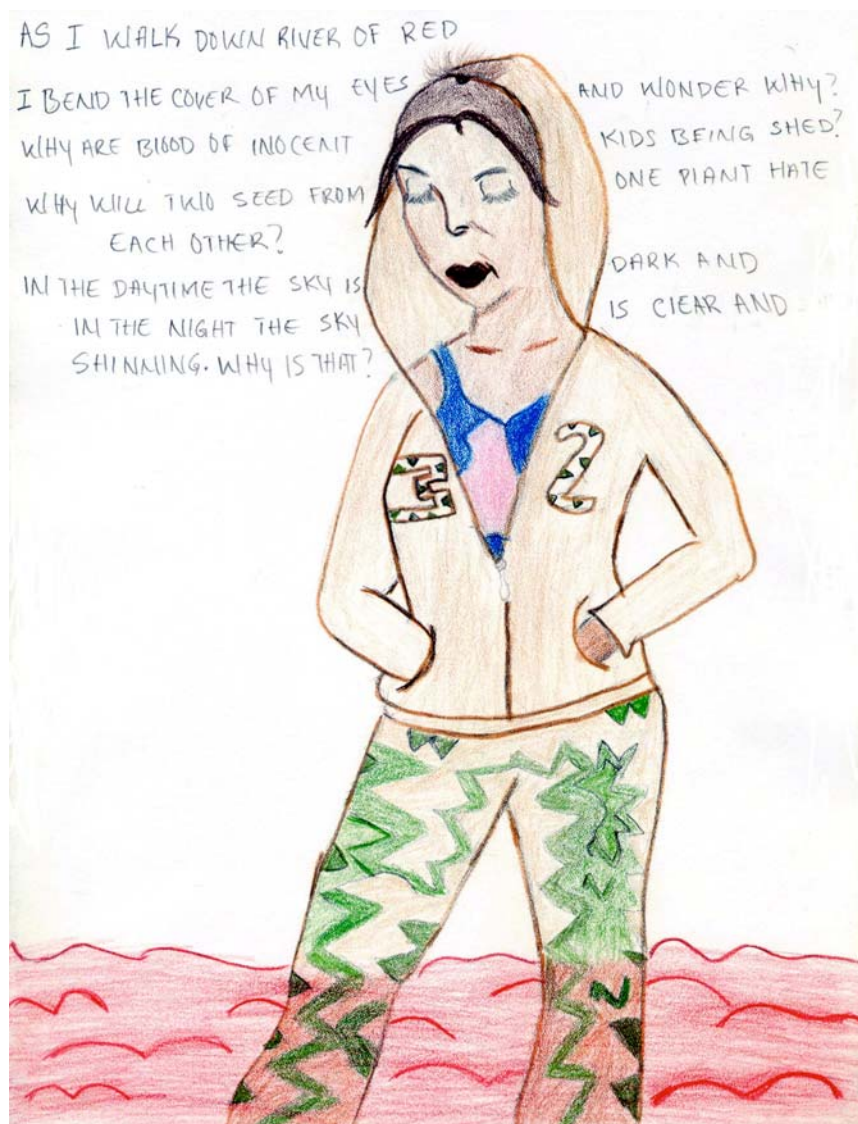 AS I WALK DOWN RIVER OF RED
I BEND THE COVER OF MY EYES AND WONDER WHY?
WHY ARE BLOOD OF INOCENT KIDS BEING SHED?
WHY WILL TWO SEED FROM ONE PLANT HATE
EACH OTHER?
IN THE DAYTIME THE SKY IS DARK AND
IN THE NIGHT THE SKY IS CLEAR AND
SHINNING. WHY IS THAT?
3 2